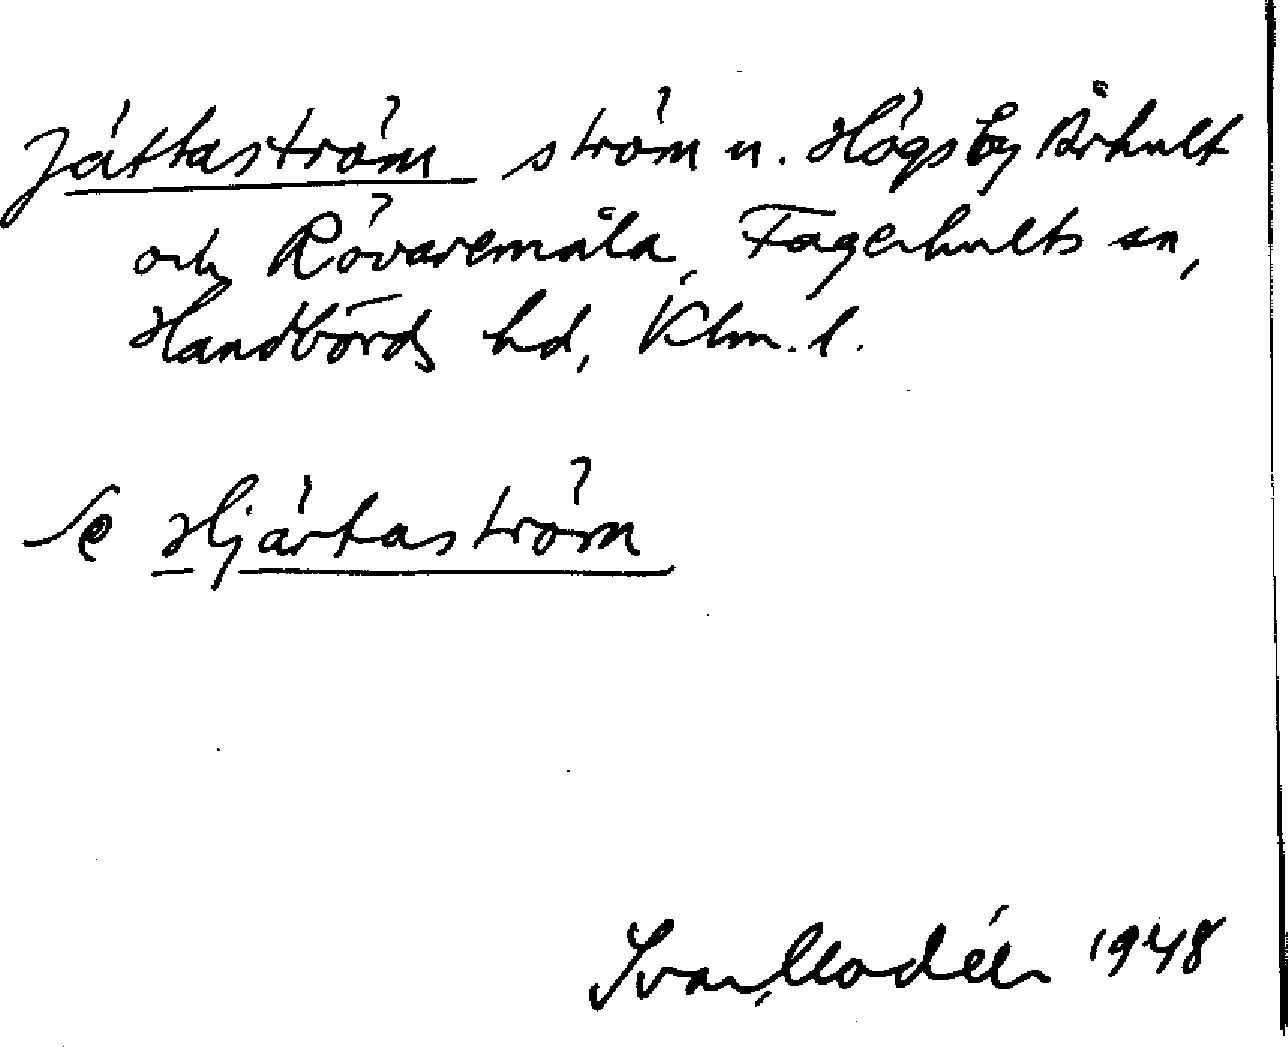 Jättaström ström n. Högsby Århult
och Rövaremåla, Fagerhults sn,
Handbörds hd, Klm. l.
Se Hjärtaström
Ivar Modéer 1948